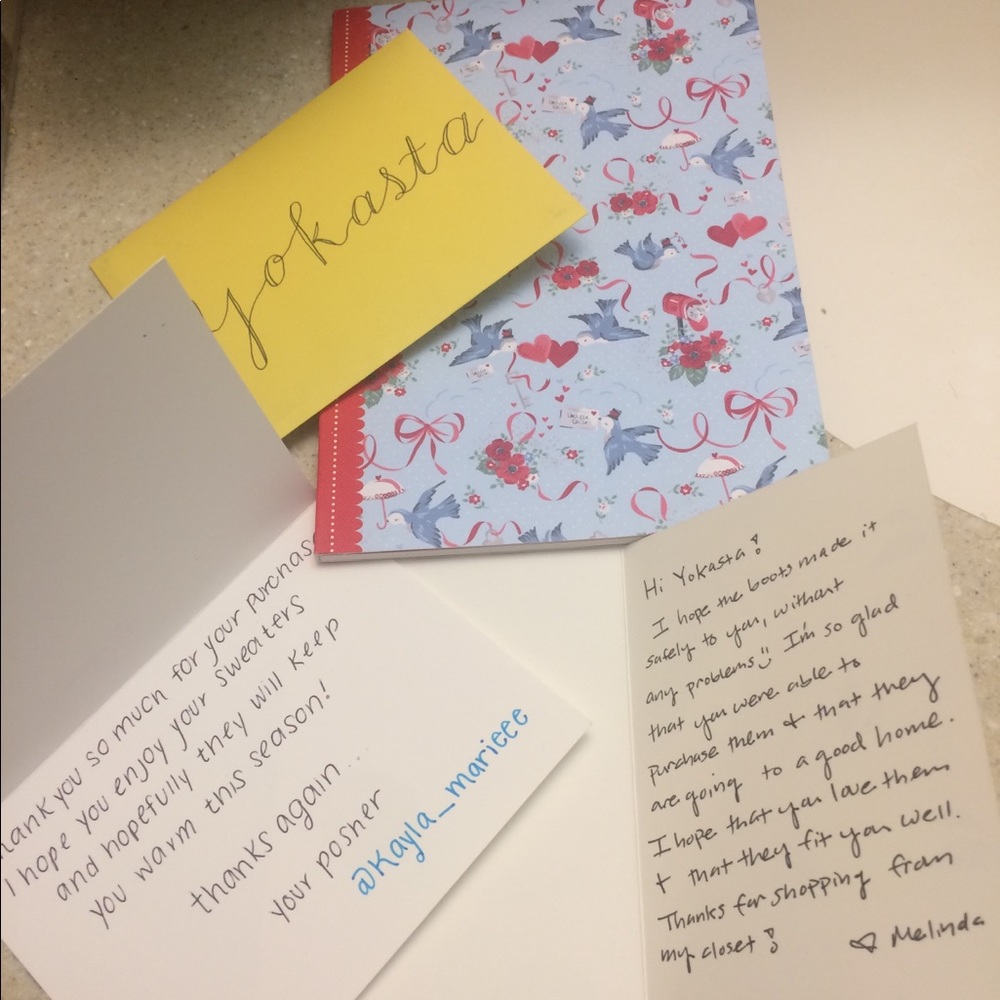 yokasta
hank you so much for your purchas
I hope you enjoy your sweaters
and hopefully they will keep
you warm this season!
thanks again...
your posher
@Kayla_marieee
Hi Yokasta!
I hope the boots made it
safely to you, without
any problems :) I'm so glad
that you were able to
purchase them & that they
are going to a good home.
I hope that you love them
+ that they fit you well.
Thanks for shopping from
my closet!
♡ Melinda